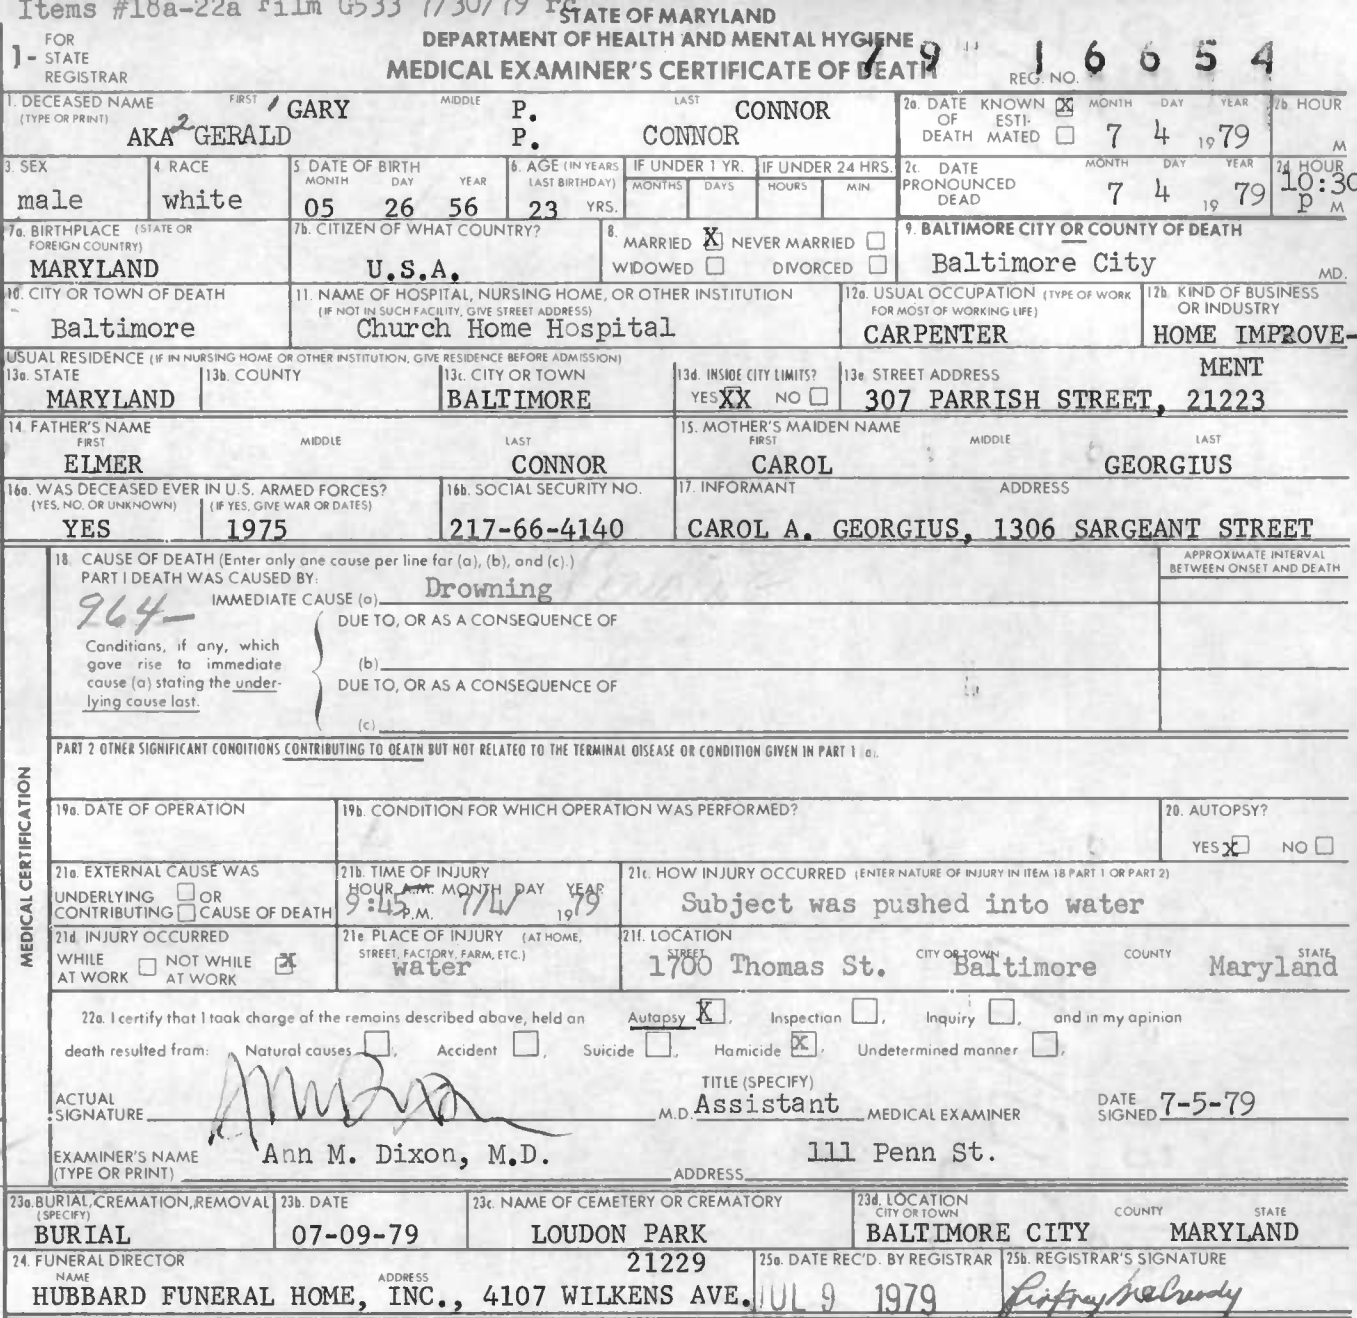 Items #18a-22a Film G533 7/30/79 rc
STATE OF MARYLAND
DEPARTMENT OF HEALTH AND MENTAL HYGIENE
MEDICAL EXAMINER'S CERTIFICATE OF DEATH
1- FOR STATE REGISTRAR
REG. NO. 79 16654
1. DECEASED NAME (TYPE OR PRINT) FIRST MIDDLE LAST
1 GARY P. CONNOR
AKA 2 GERALD P. CONNOR
2a. DATE OF DEATH KNOWN X ESTIMATED MONTH DAY YEAR 7 4 1979
2b. HOUR M
3. SEX male
4. RACE white
5. DATE OF BIRTH MONTH DAY YEAR 05 26 56
6. AGE (IN YEARS LAST BIRTHDAY) 23 YRS.
IF UNDER 1 YR. MONTHS DAYS
IF UNDER 24 HRS. HOURS MIN
2c. DATE PRONOUNCED DEAD MONTH DAY YEAR 7 4 1979
2d. HOUR 10:30 P M
7a. BIRTHPLACE (STATE OR FOREIGN COUNTRY) MARYLAND
7b. CITIZEN OF WHAT COUNTRY? U.S.A.
8. MARRIED X NEVER MARRIED
WIDOWED DIVORCED
9. BALTIMORE CITY OR COUNTY OF DEATH
Baltimore City MD.
10. CITY OR TOWN OF DEATH Baltimore
11. NAME OF HOSPITAL, NURSING HOME, OR OTHER INSTITUTION
(IF NOT IN SUCH FACILITY, GIVE STREET ADDRESS)
Church Home Hospital
12a. USUAL OCCUPATION (TYPE OF WORK FOR MOST OF WORKING LIFE) CARPENTER
12b. KIND OF BUSINESS OR INDUSTRY HOME IMPROVE-
MENT
USUAL RESIDENCE (IF IN NURSING HOME OR OTHER INSTITUTION, GIVE RESIDENCE BEFORE ADMISSION)
13a. STATE MARYLAND
13b. COUNTY
13c. CITY OR TOWN BALTIMORE
13d. INSIDE CITY LIMITS? YES XX NO
13e STREET ADDRESS 307 PARRISH STREET, 21223
14. FATHER'S NAME FIRST MIDDLE LAST
ELMER CONNOR
15. MOTHER'S MAIDEN NAME FIRST MIDDLE LAST
CAROL GEORGIUS
16a. WAS DECEASED EVER IN U.S. ARMED FORCES?
(YES, NO, OR UNKNOWN) (IF YES, GIVE WAR OR DATES)
YES 1975
16b. SOCIAL SECURITY NO. 217-66-4140
17. INFORMANT ADDRESS
CAROL A. GEORGIUS, 1306 SARGEANT STREET
MEDICAL CERTIFICATION
18. CAUSE OF DEATH (Enter only one cause per line for (a), (b), and (c).)
PART I DEATH WAS CAUSED BY:
IMMEDIATE CAUSE (a) Drowning
964-
APPROXIMATE INTERVAL BETWEEN ONSET AND DEATH
Conditions, if any, which gave rise to immediate cause (a) stating the underlying cause last.
DUE TO, OR AS A CONSEQUENCE OF
(b)
DUE TO, OR AS A CONSEQUENCE OF
(c)
PART 2 OTHER SIGNIFICANT CONDITIONS CONTRIBUTING TO DEATH BUT NOT RELATED TO THE TERMINAL DISEASE OR CONDITION GIVEN IN PART 1 (a).
19a. DATE OF OPERATION
19b. CONDITION FOR WHICH OPERATION WAS PERFORMED?
20. AUTOPSY? YES X NO
21a. EXTERNAL CAUSE WAS
UNDERLYING OR
CONTRIBUTING CAUSE OF DEATH
21b. TIME OF INJURY
HOUR A.M. MONTH DAY YEAR
9:45 P.M. 7/4/ 1979
21c. HOW INJURY OCCURRED (ENTER NATURE OF INJURY IN ITEM 18 PART 1 OR PART 2)
Subject was pushed into water
21d. INJURY OCCURRED
WHILE AT WORK NOT WHILE AT WORK X
21e. PLACE OF INJURY (AT HOME, STREET, FACTORY, FARM, ETC.)
water
21f. LOCATION
STREET CITY OR TOWN COUNTY STATE
1700 Thomas St. Baltimore Maryland
22a. I certify that I took charge of the remains described above, held an Autopsy X, Inspection, Inquiry, and in my opinion
death resulted from: Natural causes, Accident, Suicide, Homicide X, Undetermined manner,
ACTUAL SIGNATURE M.D.
TITLE (SPECIFY) Assistant MEDICAL EXAMINER
DATE SIGNED 7-5-79
EXAMINER'S NAME (TYPE OR PRINT) Ann M. Dixon, M.D.
ADDRESS 111 Penn St.
23a. BURIAL, CREMATION, REMOVAL (SPECIFY) BURIAL
23b. DATE 07-09-79
23c. NAME OF CEMETERY OR CREMATORY LOUDON PARK
23d. LOCATION CITY OR TOWN COUNTY STATE
BALTIMORE CITY MARYLAND
24. FUNERAL DIRECTOR
NAME ADDRESS 21229
HUBBARD FUNERAL HOME, INC., 4107 WILKENS AVE.
25a. DATE REC'D. BY REGISTRAR JUL 9 1979
25b. REGISTRAR'S SIGNATURE